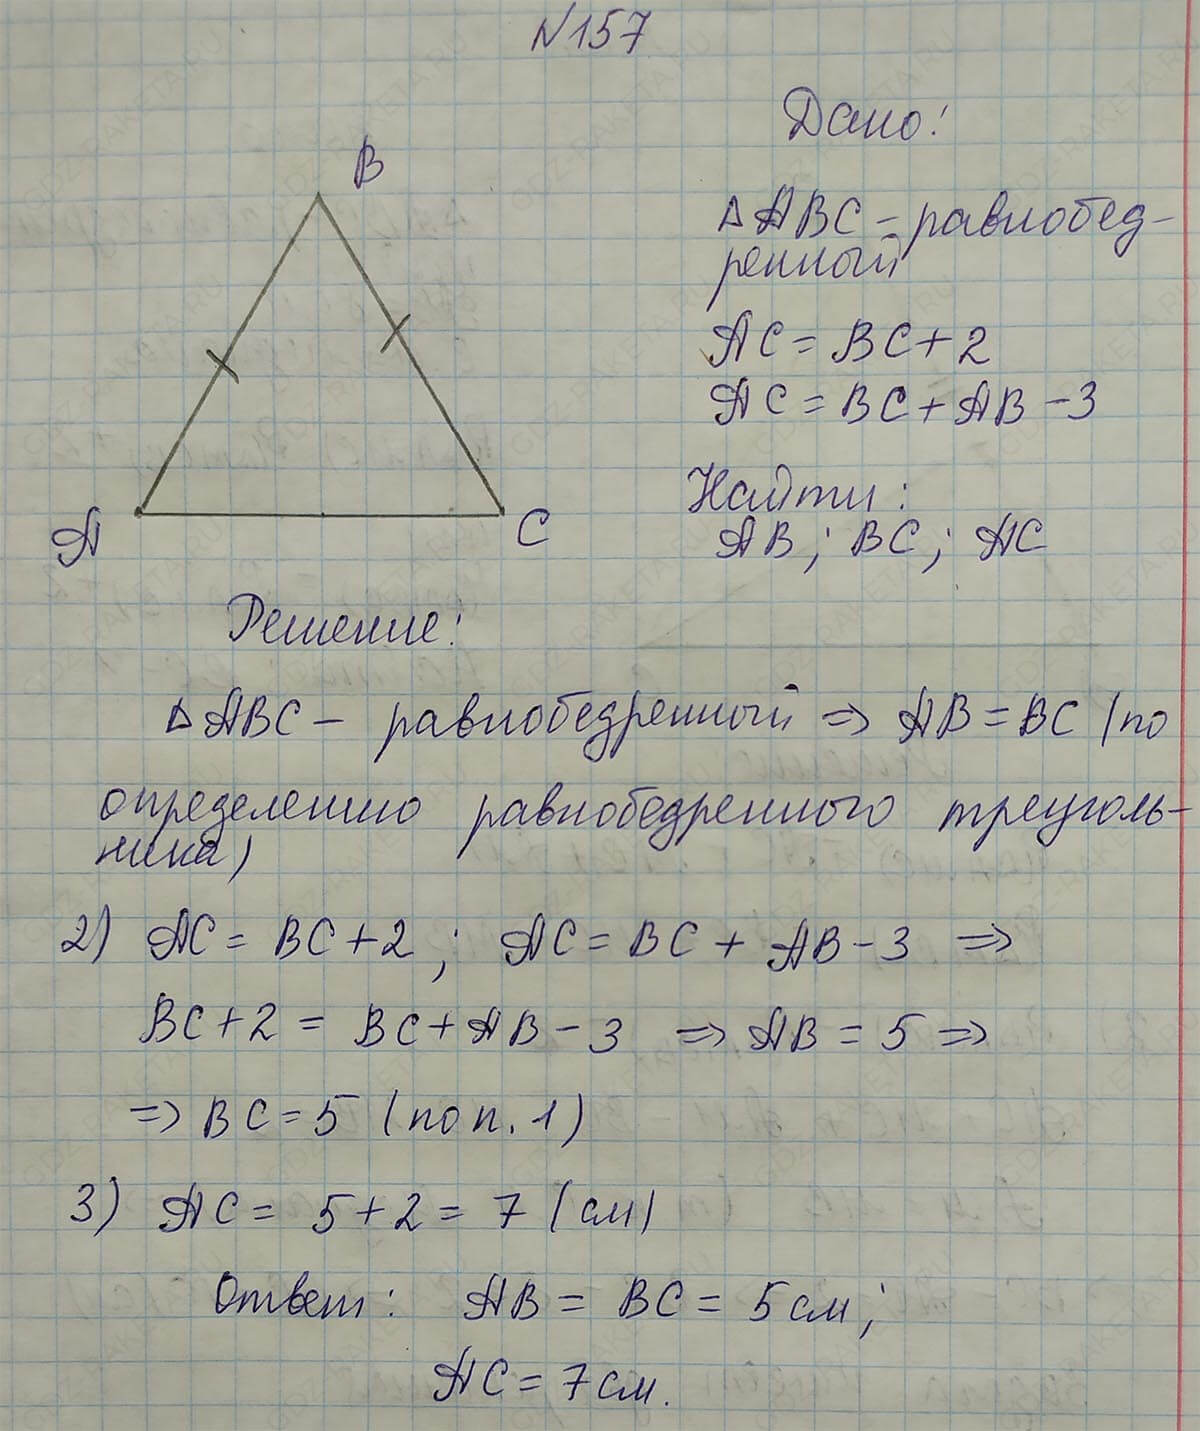 N157
B
Дано:
△ABC – равнобед-
ренный
AC = BC + 2
AC = BC + AB - 3
Найти:
AB; BC; AC
A
C
Решение:
△ABC – равнобедренный => AB = BC (по
определению равнобедренного треуголь-
ника)
2) AC = BC + 2; AC = BC + AB - 3 =>
BC + 2 = BC + AB - 3 => AB = 5 =>
=> BC = 5 (по п. 1)
3) AC = 5 + 2 = 7 (см)
Ответ: AB = BC = 5 см;
AC = 7 см.